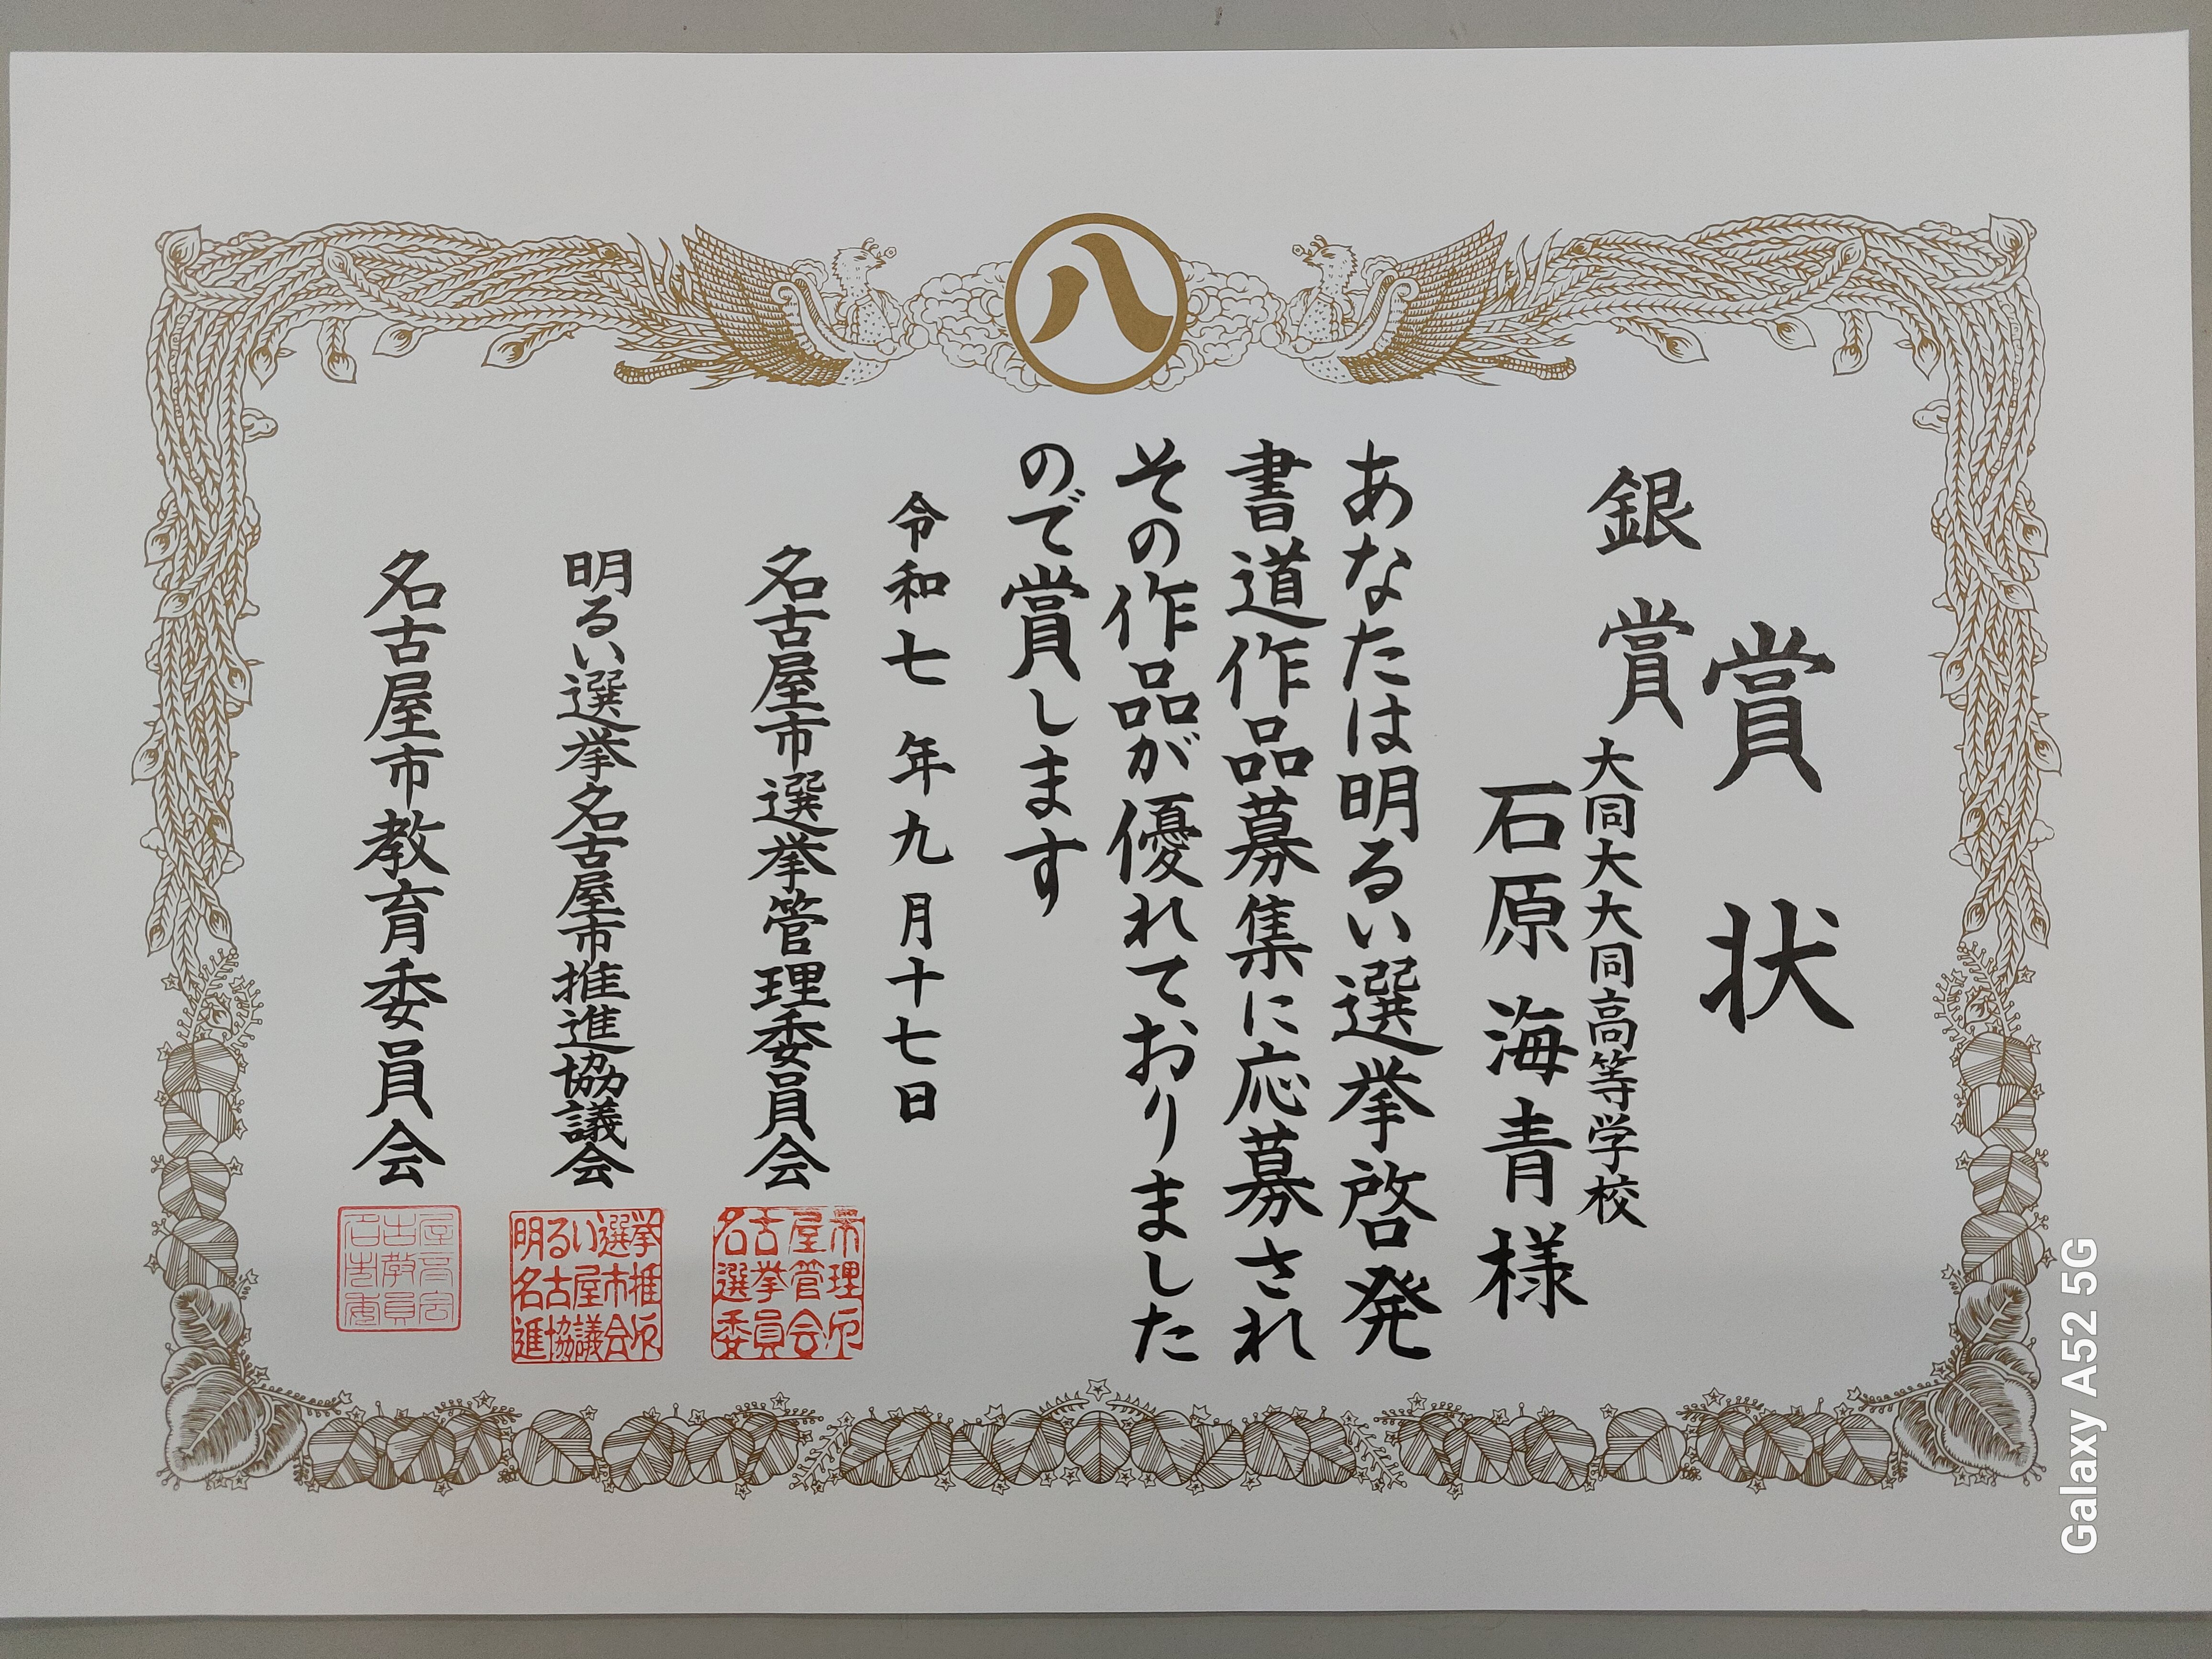 八
賞状
銀賞
大同大大同高等学校
石原海青様
あなたは明るい選挙啓発
書道作品募集に応募され
その作品が優れておりました
ので賞します
令和七年九月十七日
名古屋市選挙管理委員会
明るい選挙名古屋市推進協議会
名古屋市教育委員会
名古屋市
選挙管理
委員会印
明るい選挙
名古屋市推
進協議会印
Galaxy A52 5G